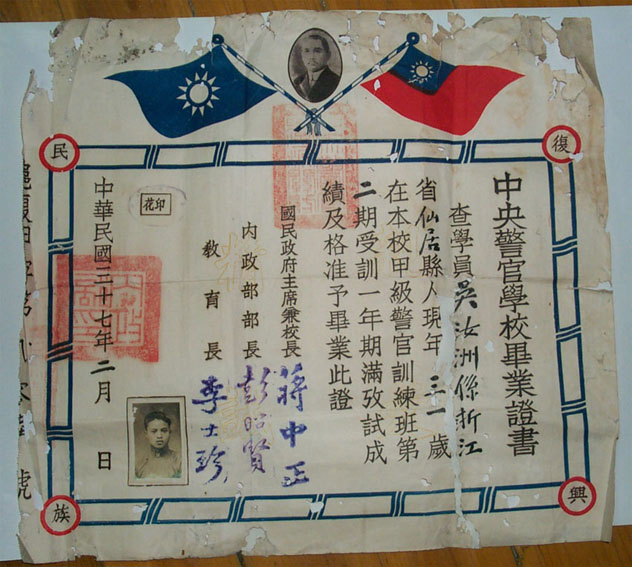 復
興
民
族
中央警官學校畢業證書
查學員吳汝洲係浙江
省仙居縣人現年三一歲
在本校甲級警官訓練班第
二期受訓一年期滿攷試成
績及格准予畢業此證
國民政府主席兼校長 蔣中正
內政部部長 彭昭賢
教育長 李士珍
印花
中華民國三十七年二月 日
號